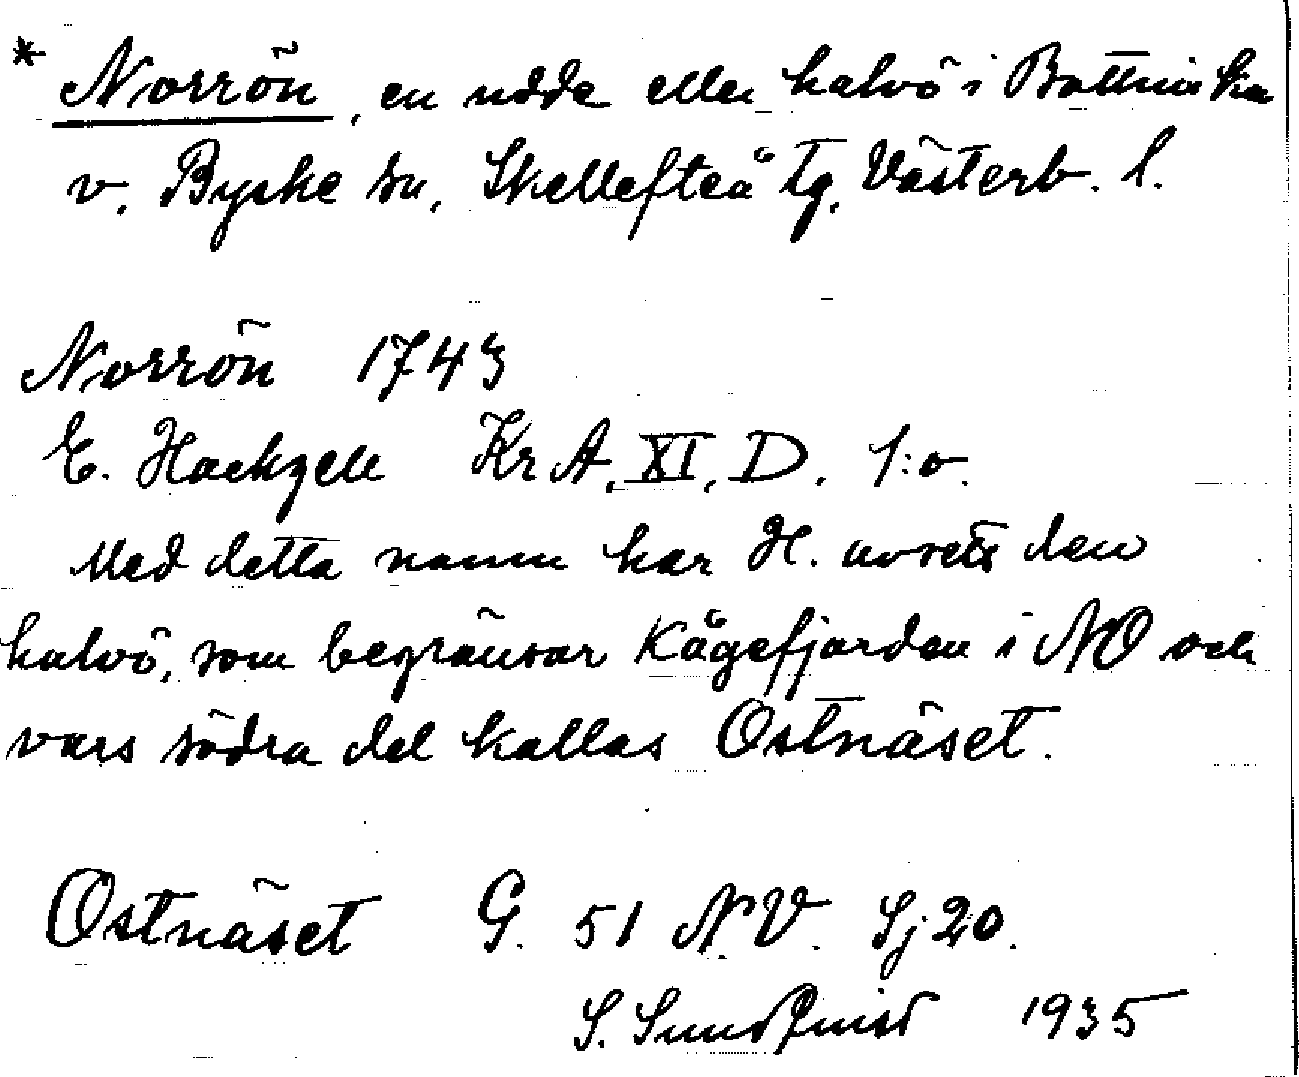 * Norrön, en udde eller halvö i Bottniska
v. Byske sn, Skellefteå tg, Västerb. l.
Norrön 1743
E. Hackzell Kr A, XI, D. 1:o.
Med detta namn har H. avsett den
halvö, som begränsar Kågefjärden i NO och
vars södra del kallas Ostnäset.
Ostnäset G. 51 N.V. Sj 20.
S. Sundqvist 1935